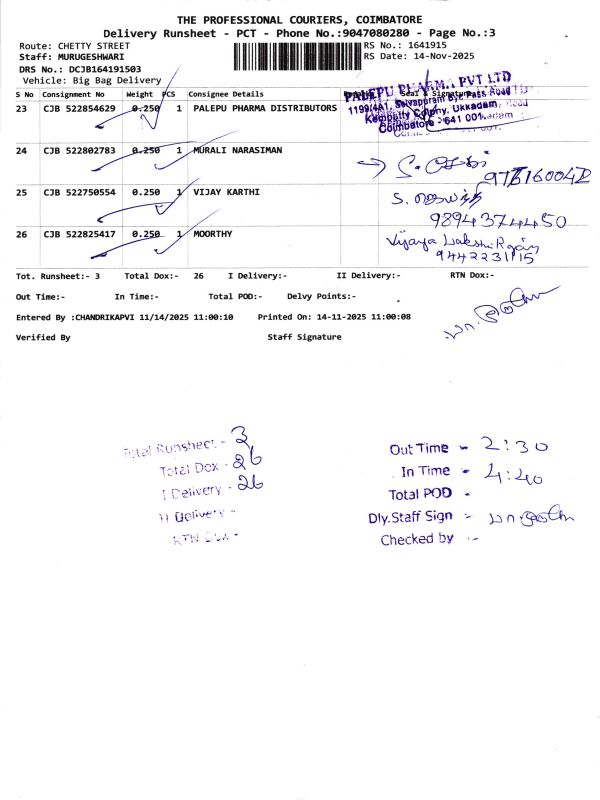 THE PROFESSIONAL COURIERS, COIMBATORE
Delivery Runsheet - PCT - Phone No.:9047080280 - Page No.:3
Route: CHETTY STREET
RS No.: 1641915
Staff: MURUGESHWARI
RS Date: 14-Nov-2025
DRS No.: DCJB164191503
Vehicle: Big Bag Delivery
S No Consignment No Weight PCS Consignee Details Seal & Signature
PALEPU PHARMA PVT LTD
1199/4A1, Selvapuram Bye Pass Road
Kempatty Colony, Ukkadam
Coimbatore - 641 001.
23 CJB 522854629 0.250 1 PALEPU PHARMA DISTRIBUTORS
24 CJB 522802783 0.250 1 MURALI NARASIMAN
25 CJB 522750554 0.250 1 VIJAY KARTHI
9894374450
26 CJB 522825417 0.250 1 MOORTHY
Vijaya Lakshi
9442231115
Tot. Runsheet:- 3 Total Dox:- 26 I Delivery:- II Delivery:- RTN Dox:-
Out Time:- In Time:- Total POD:- Delvy Points:-
Entered By :CHANDRIKAPVI 11/14/2025 11:00:10 Printed On: 14-11-2025 11:00:08
Verified By Staff Signature
Total Runsheet - 3
Total Dox - 26
I Delivery - 26
II Delivery -
RTN Dox -
Out Time - 2:30
In Time - 4:40
Total POD -
Dly.Staff Sign -
Checked by -